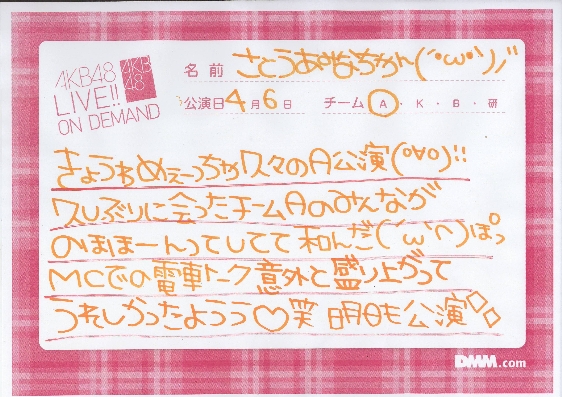 AKB48
LIVE!!
ON DEMAND
AKB
48
名前 さとうあみなちゃん(´•ω•`)ﾉ
公演日 4月6日 チーム A・K・B・研
きょうわめぇーっちゃ久々のA公演(°∀°)!!
久しぶりに会ったチームAのみんなが
のほほーんってしてて和んだ(´ω`∩)ぽっ
MCでの電車トーク意外と盛り上がって
うれしかったようう♡笑 明日も公演◇◇
DMM.com